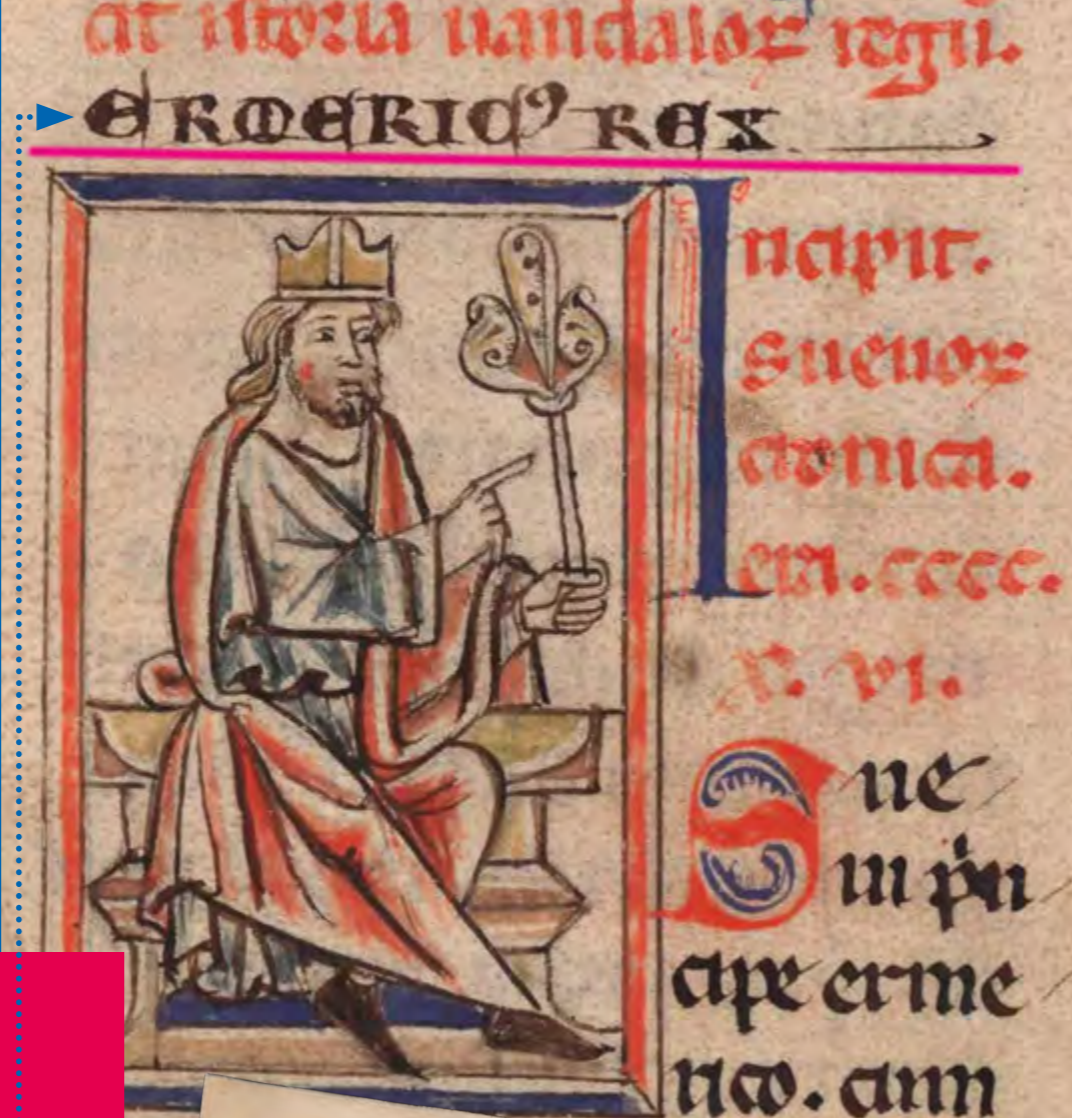 cit istoria uandaloꝝ regū.
ERMERICꝰ REX
Incipit.
sueuoꝝ
cronica.
era. cccc.
x. vi.
Sue
ui pͥn
cipe erme
rico. ann